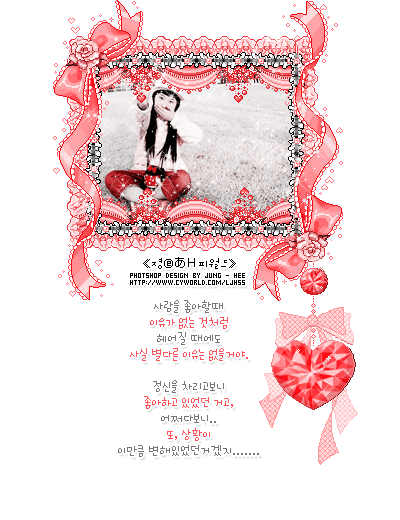 《정@あH피원드》
PHOTOSHOP DESIGN BY JUNG - HEE
HTTP://WWW.CYWORLD.COM/LJHSS
사람을 좋아할때,
이유가 없는 것처럼
헤어질 때에도
사실 별다른 이유는 없을거야.
정신을 차리고보니
좋아하고 있었던 거고,
어쩌다보니..
또, 상황이
이만큼 변해있었던거겠지.......